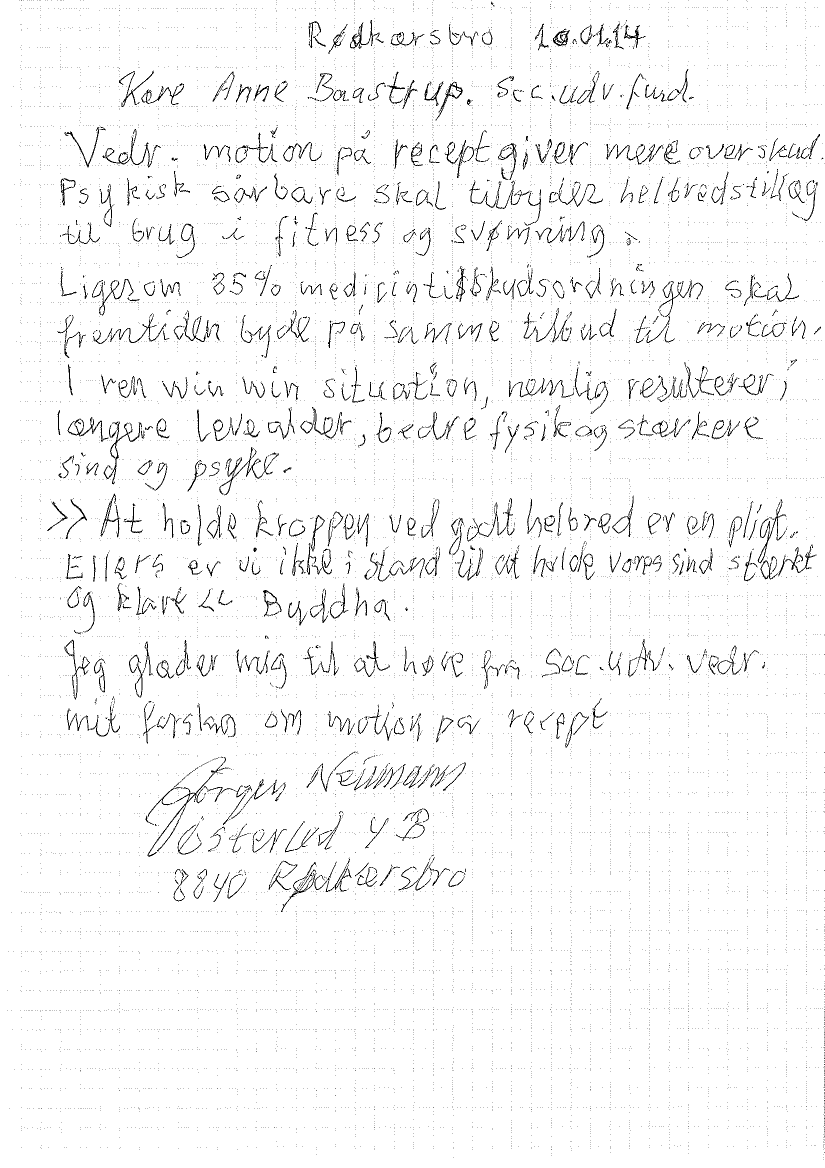 Rødkærsbro 10.01.14
Kære Anne Baastrup. Soc.udv.fmd.
Vedr. motion på recept giver mere overskud.
Psykisk sårbare skal tilbydes helbredstillæg
til brug i fitness og svømning.
Ligesom 85% medicintilskudsordningen skal
fremtiden byde på samme tilbud til motion.
I ren win win situation, nemlig resulterer i
længere levealder, bedre fysik og stærkere
sind og psyke.
>> At holde kroppen ved godt helbred er en pligt.
Ellers er vi ikke i stand til at holde vores sind stærkt
og klart << Buddha.
Jeg glæder mig til at høre fra Soc.udv. vedr.
mit forslag om motion på recept
Jørgen Neumann
Østerled 4 B
8840 Rødkærsbro